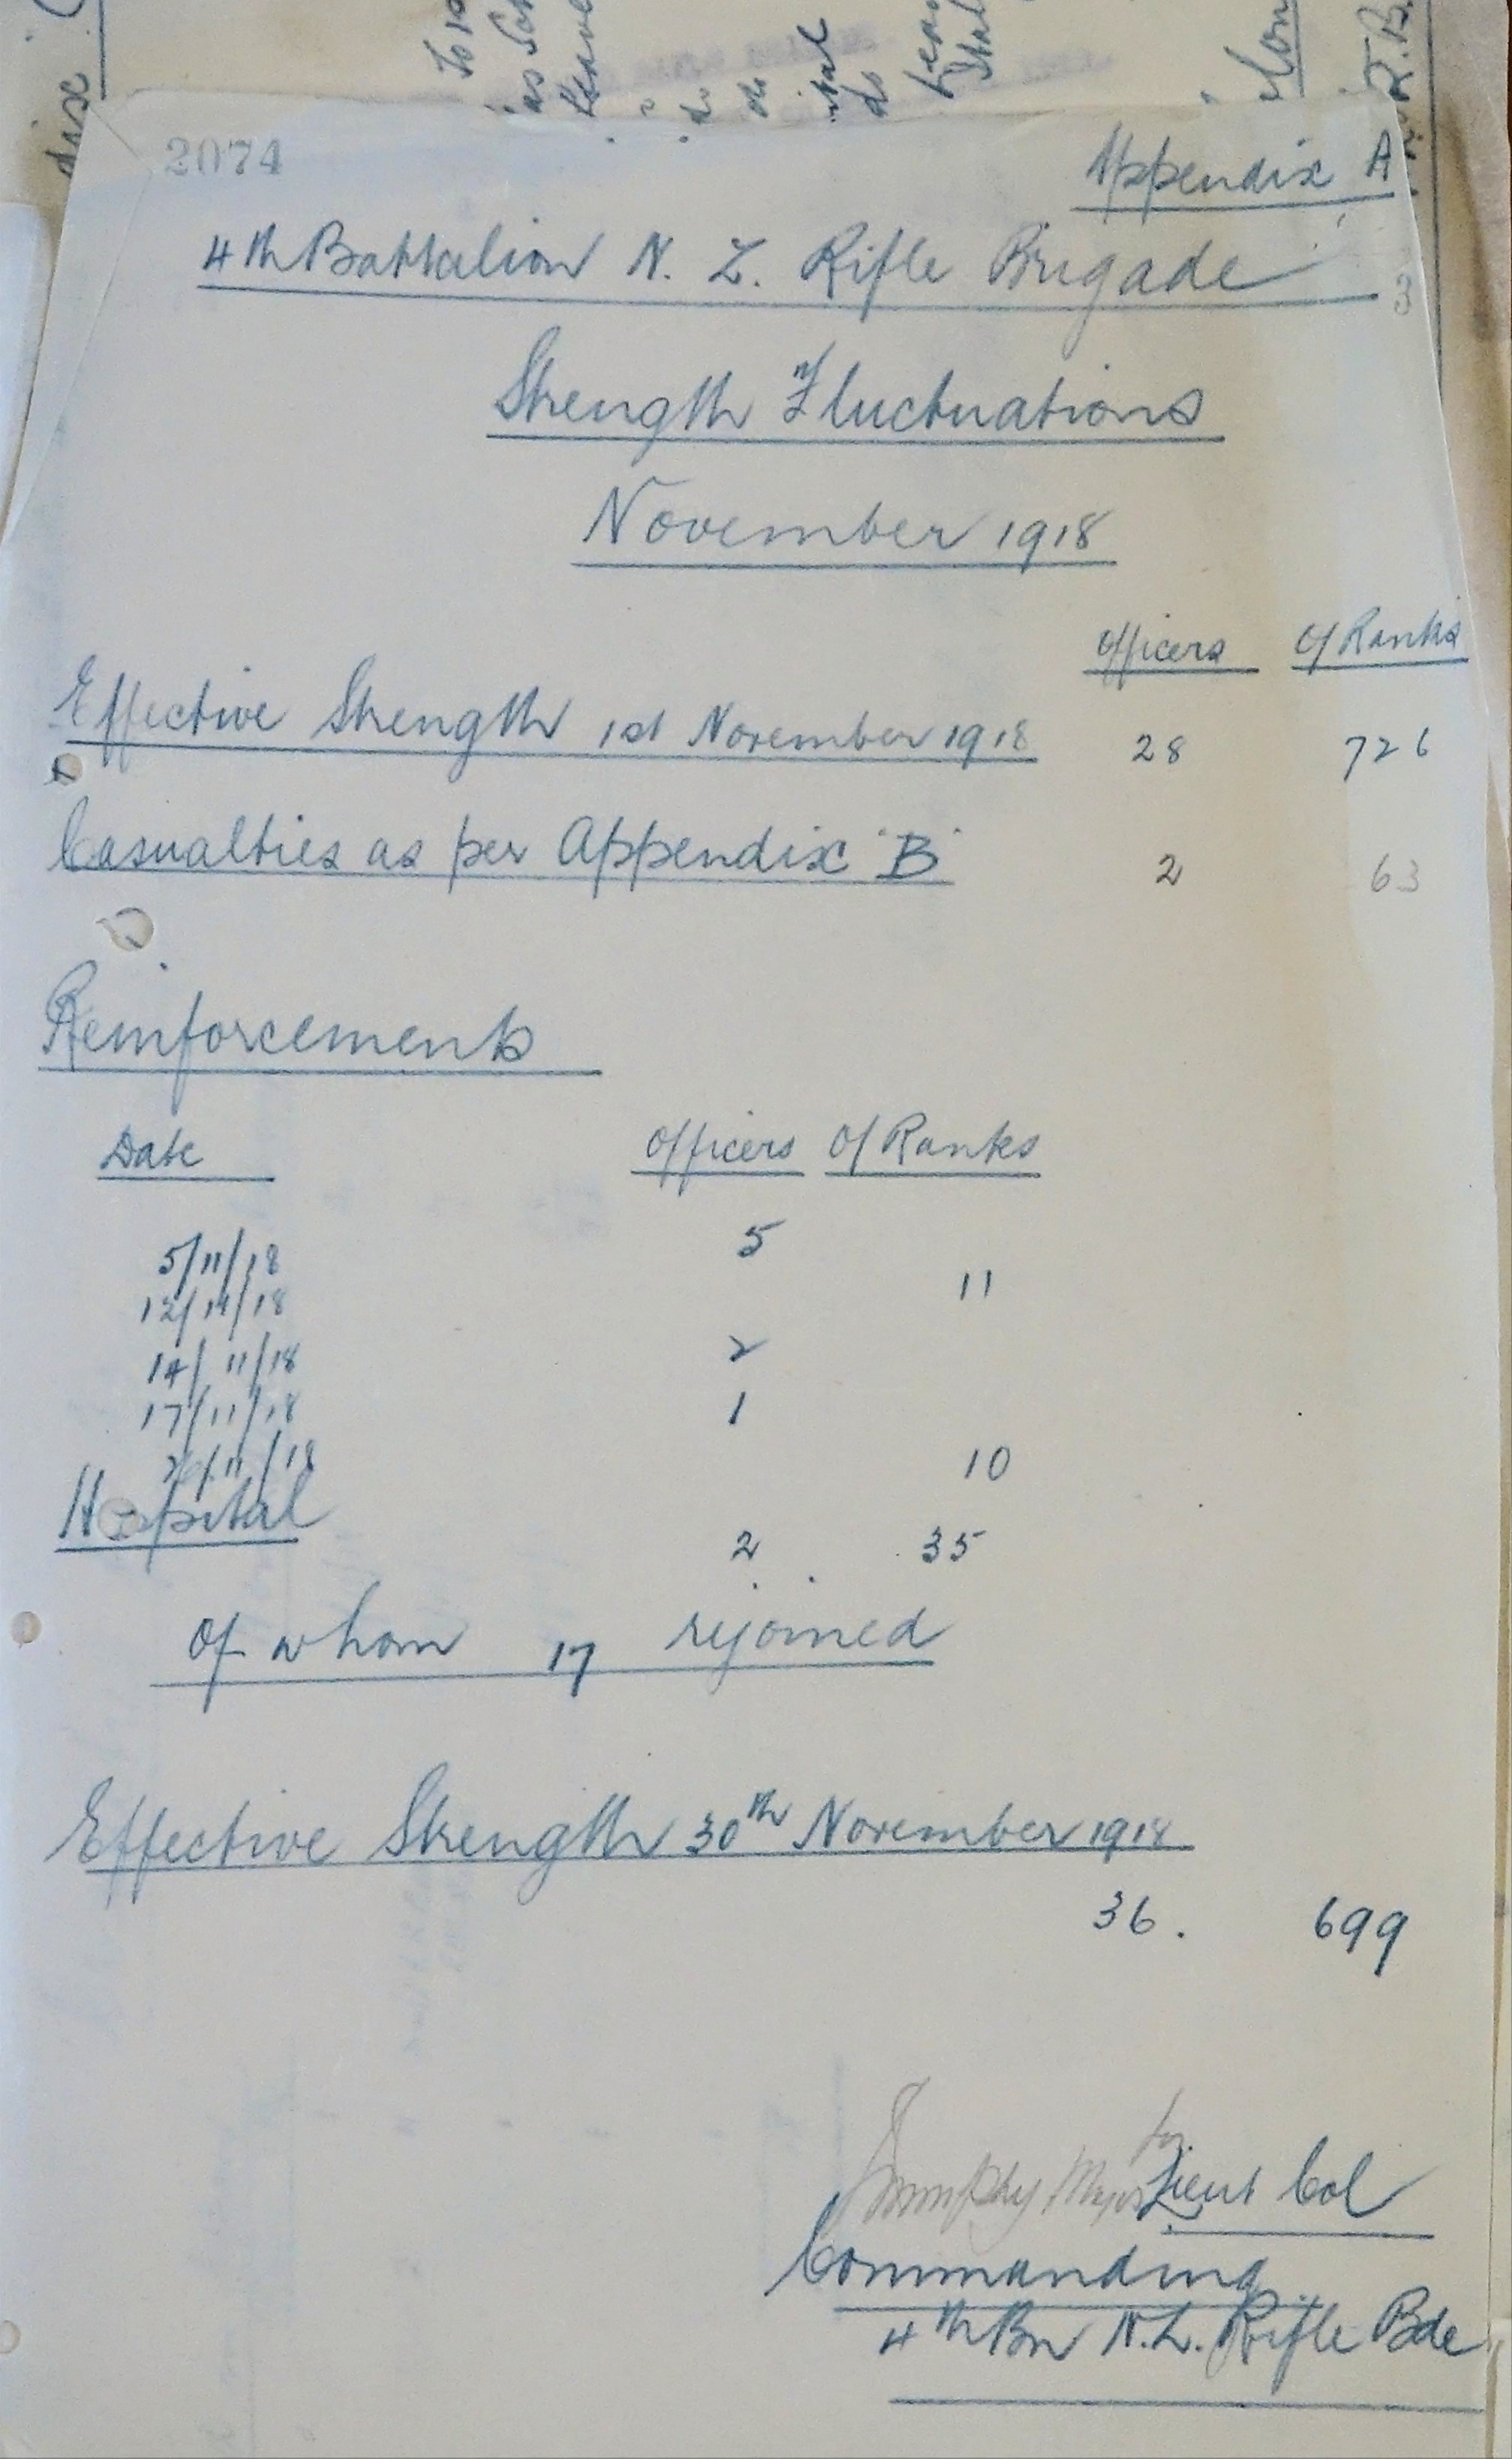 2074
Appendix A
4th Battalion N. Z. Rifle Brigade
3
Strength Fluctuations
November 1918
Officers O/Ranks
Effective Strength 1st November 1918 28 726
Casualties as per Appendix "B" 2 63
Reinforcements
Date Officers O/Ranks
5/11/18 5
12/11/18 11
14/11/18 2
17/11/18 1
26/11/18 10
Hospital 2 35
of whom 17 rejoined
Effective Strength 30th November 1918
36. 699
for
Major Lieut Col
Commanding
4th Bn N.Z. Rifle Bde